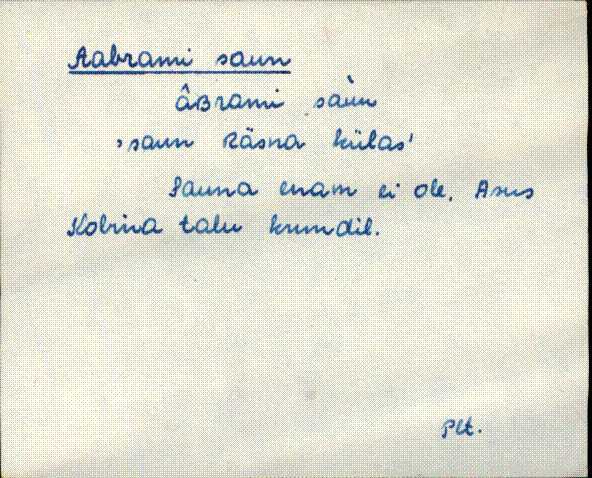 Aabrami saun
âʙrami sàun
‚saun Räsna külas'
Sauna enam ei ole. Asus
Kobina talu krundil.
Plt.